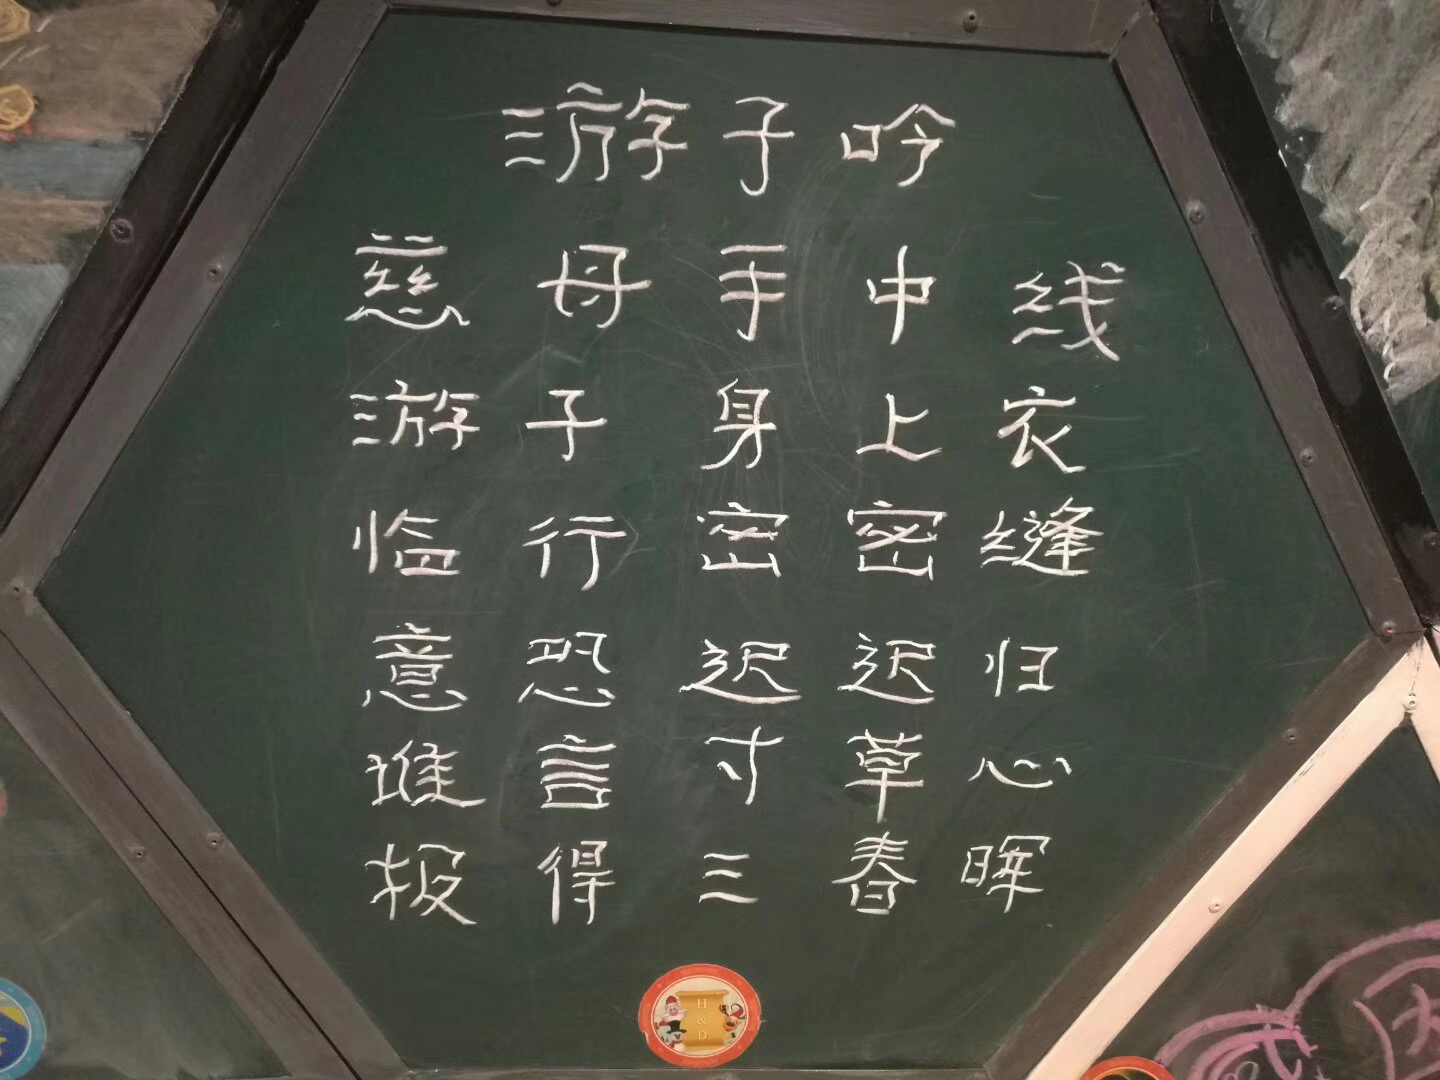 游子吟
慈母手中线
游子身上衣
临行密密缝
意恐迟迟归
谁言寸草心
报得三春晖
H
&
D